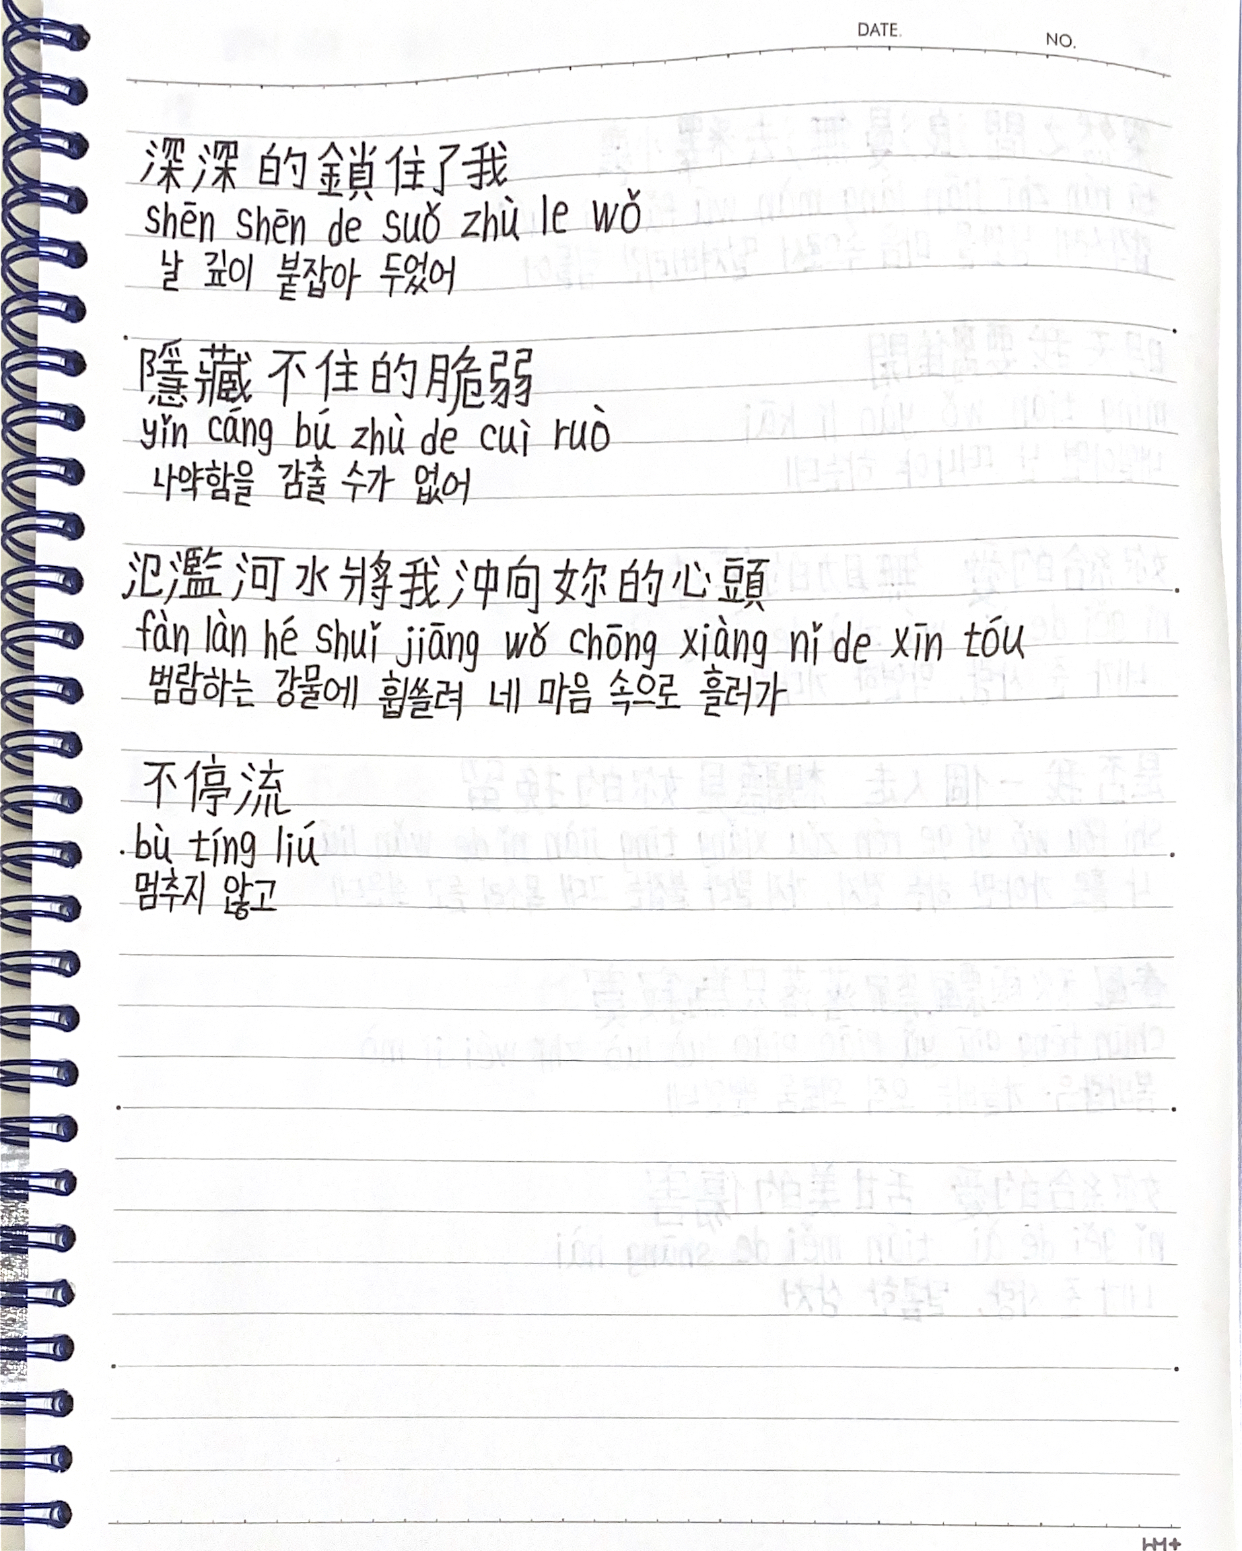 DATE.
NO.
深深的鎖住了我
shēn shēn de suǒ zhù le wǒ
날 깊이 붙잡아 두었어
隱藏不住的脆弱
yǐn cáng bú zhù de cuì ruò
나약함을 감출 수가 없어
氾濫河水將我沖向妳的心頭
fàn làn hé shuǐ jiāng wǒ chōng xiàng nǐ de xīn tóu
범람하는 강물에 휩쓸려 네 마음 속으로 흘러가
不停流
bù tíng liú
멈추지 않고